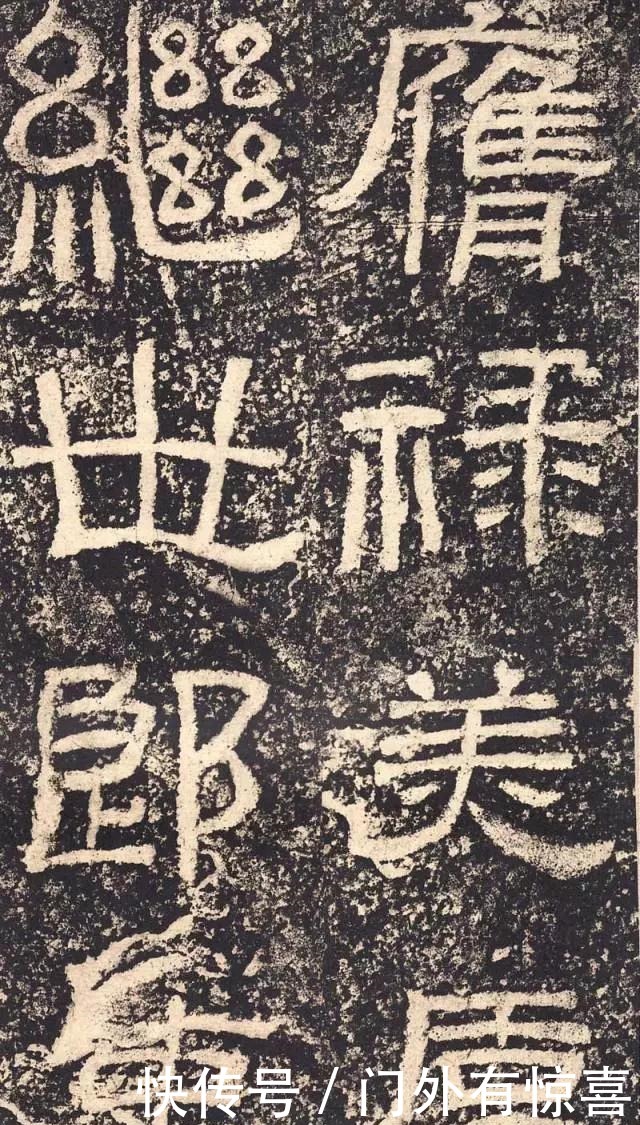 膺祿美
繼世郎
快传号 / 门外有惊喜